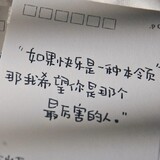 “如果快乐是一种本领
那我希望你是那个
最厉害的人。”